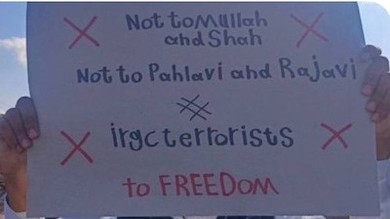 Not to Mullah
and Shah
Not to Pahlavi and Rajavi
#
irgcterrorists
to FREEDOM